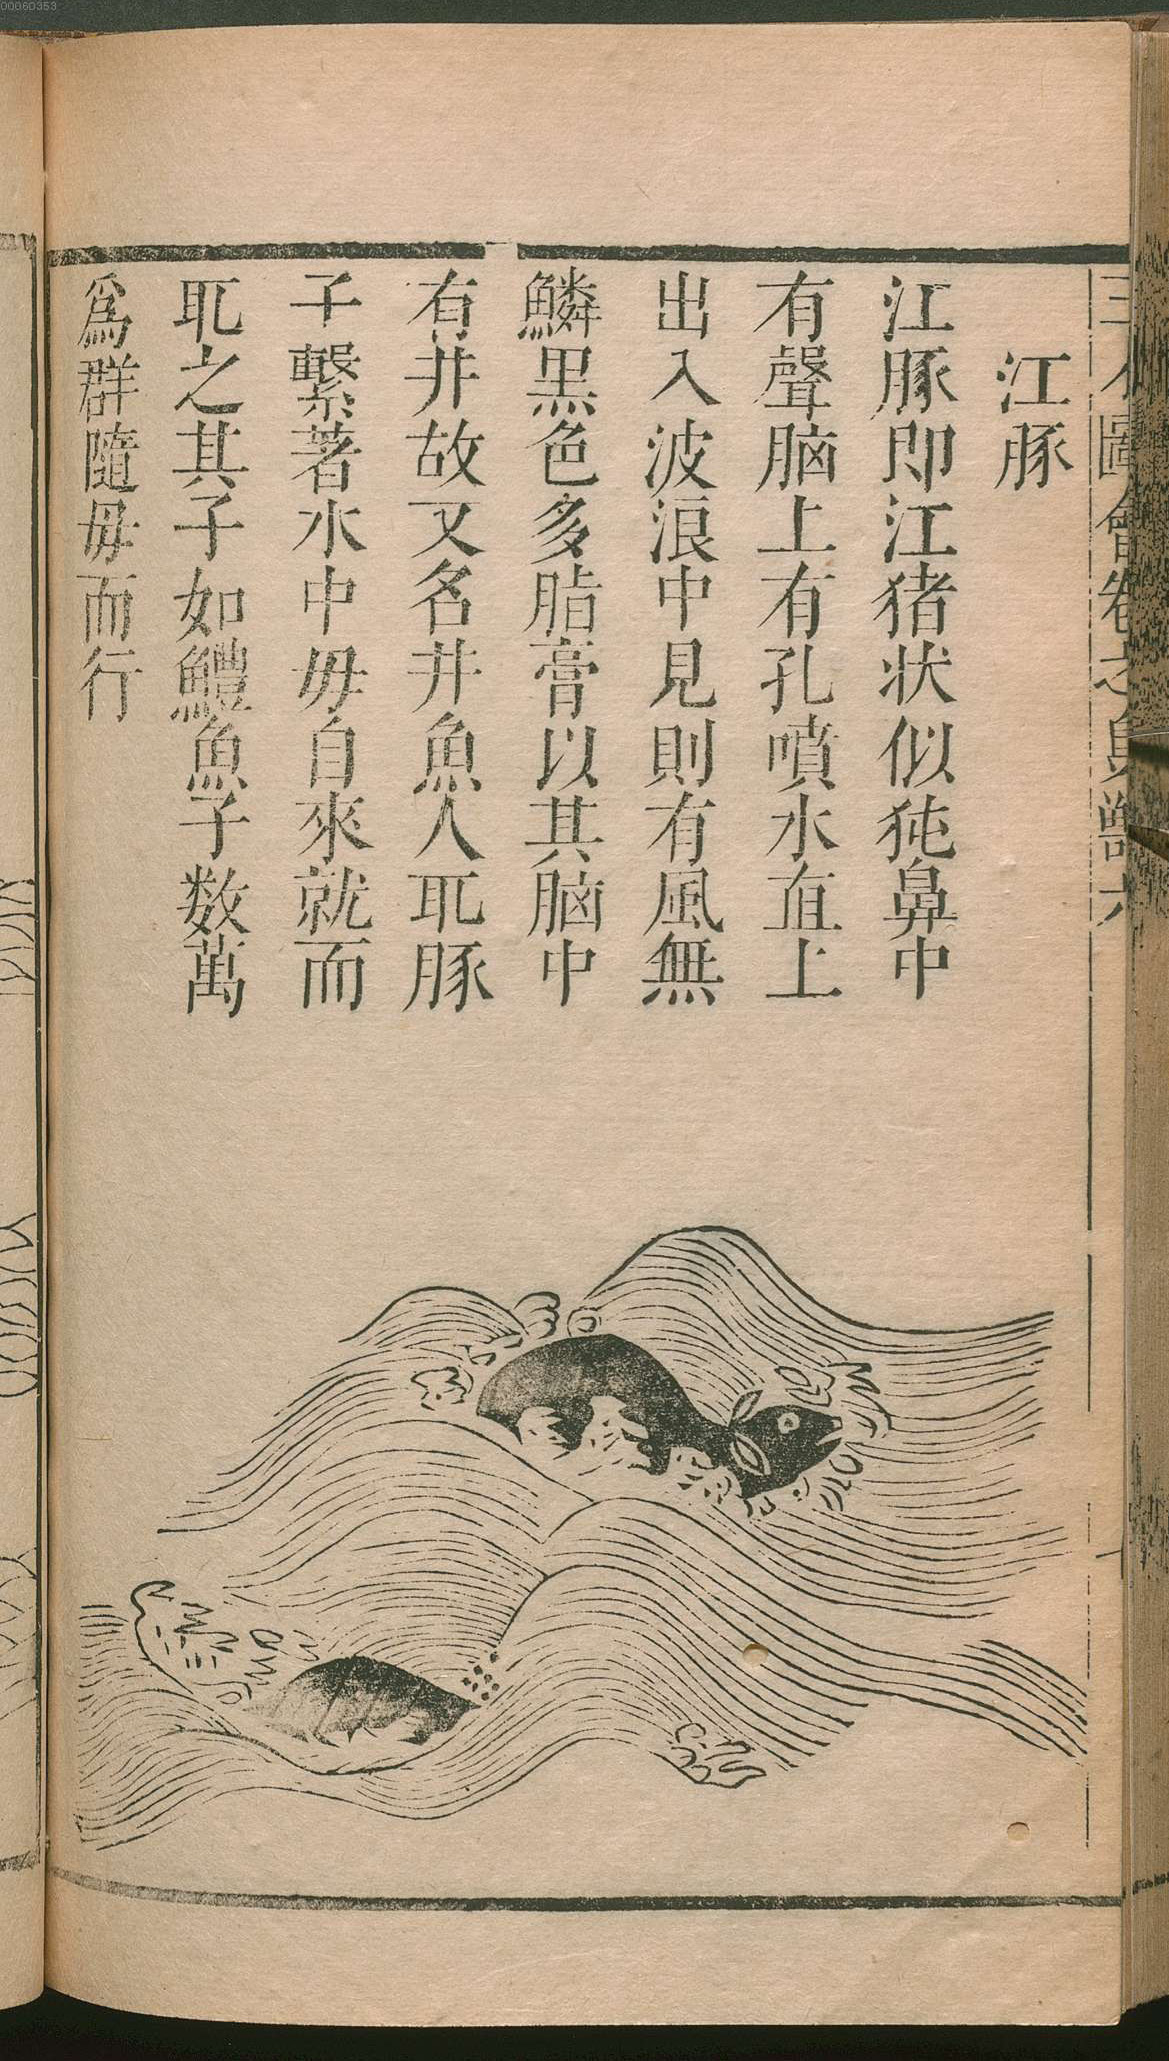 00060353
三才圖會卷之鳥獸六
江豚
江豚即江猪状似㹠鼻中
有聲脑上有孔噴水直上
出入波浪中見則有風無
鱗黒色多脂膏以其脑中
有井故又名井魚人取豚
子繫著水中毋自來就而
取之其子如鱧魚子数萬
爲群隨毋而行